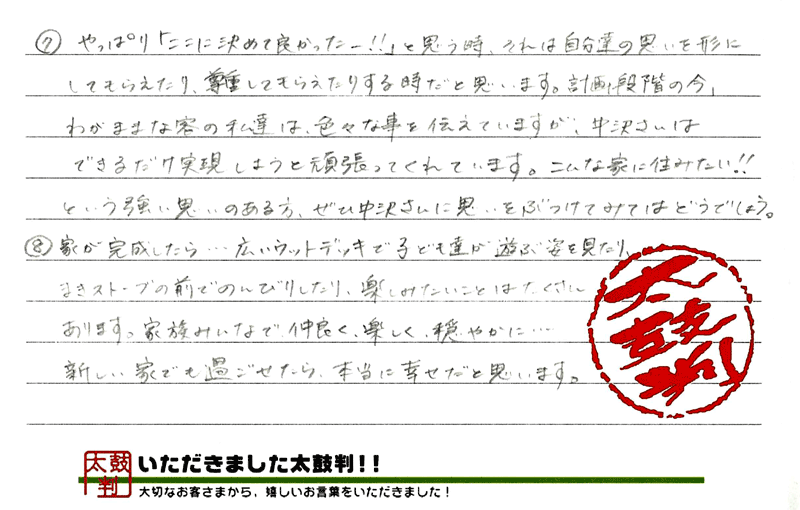 ⑦ やっぱり「ここに決めて良かったー!!」と思う時、それは自分達の思いを形に
してもらえたり、尊重してもらえたりする時だと思います。計画段階の今、
わがままな客の私達は、色々な事を伝えていますが、中沢さんは
できるだけ実現しようと頑張ってくれています。こんな家に住みたい!!
という強い思いのある方、ぜひ中沢さんに思いをぶつけてみてはどうでしょう。
⑧ 家が完成したら…広いウットデッキで子ども達が遊ぶ姿を見たり、
まきストーブの前でのんびりしたり、楽しみたいことはたくさん
あります。家族みんなで仲良く、楽しく、穏やかに…
新しい家でも過ごせたら、本当に幸せだと思います。
太鼓判
太鼓判
いただきました太鼓判!!
大切なお客さまから、嬉しいお言葉をいただきました!